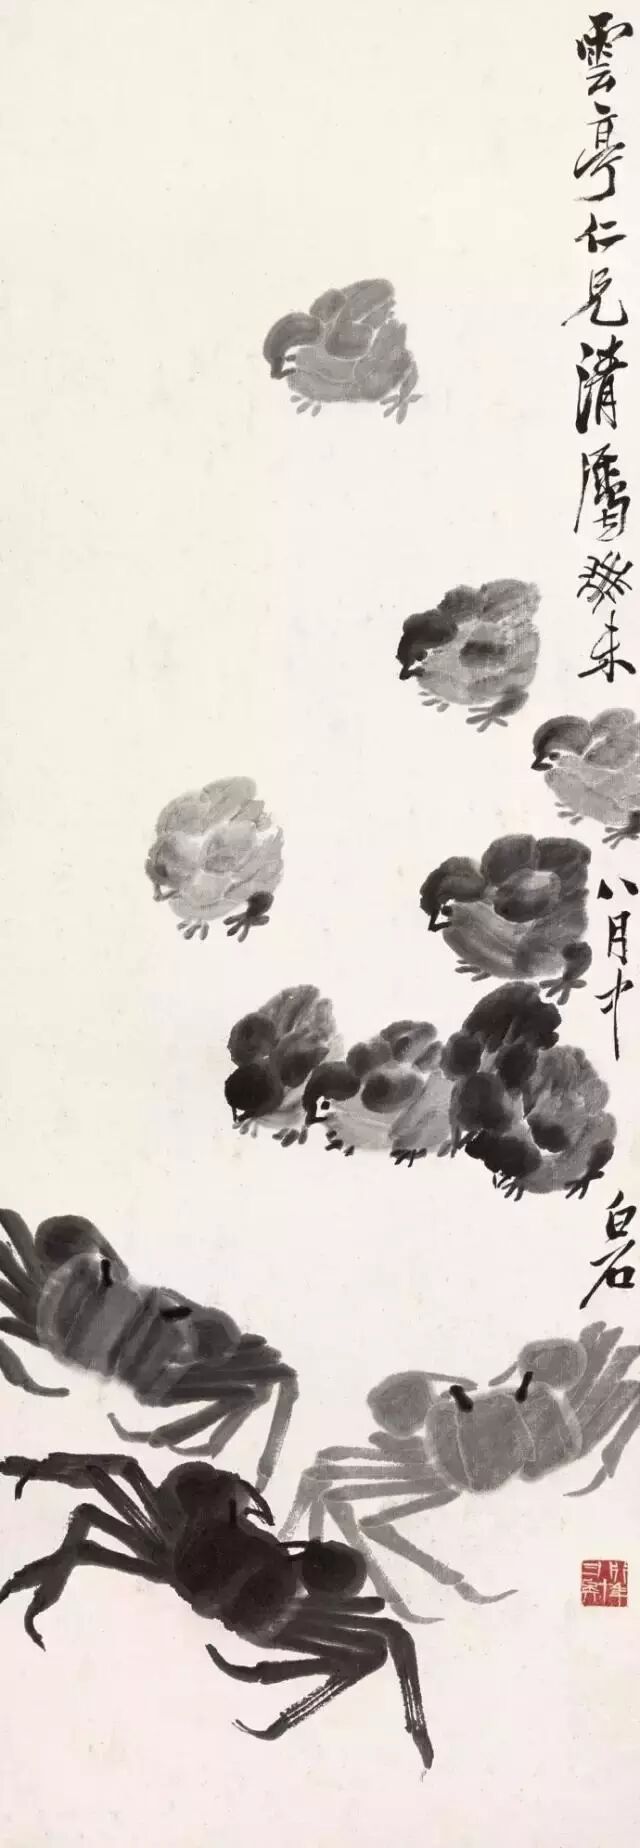 雲亭仁兄清屬癸未八月中白石